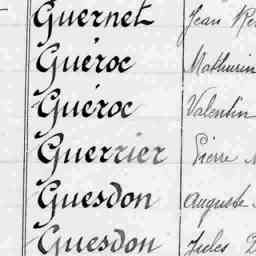 Guernet Jean
Guéroc Mathurin
Guéroc Valentin
Guerrier Pierre
Guesdon Auguste
Guesdon Jules